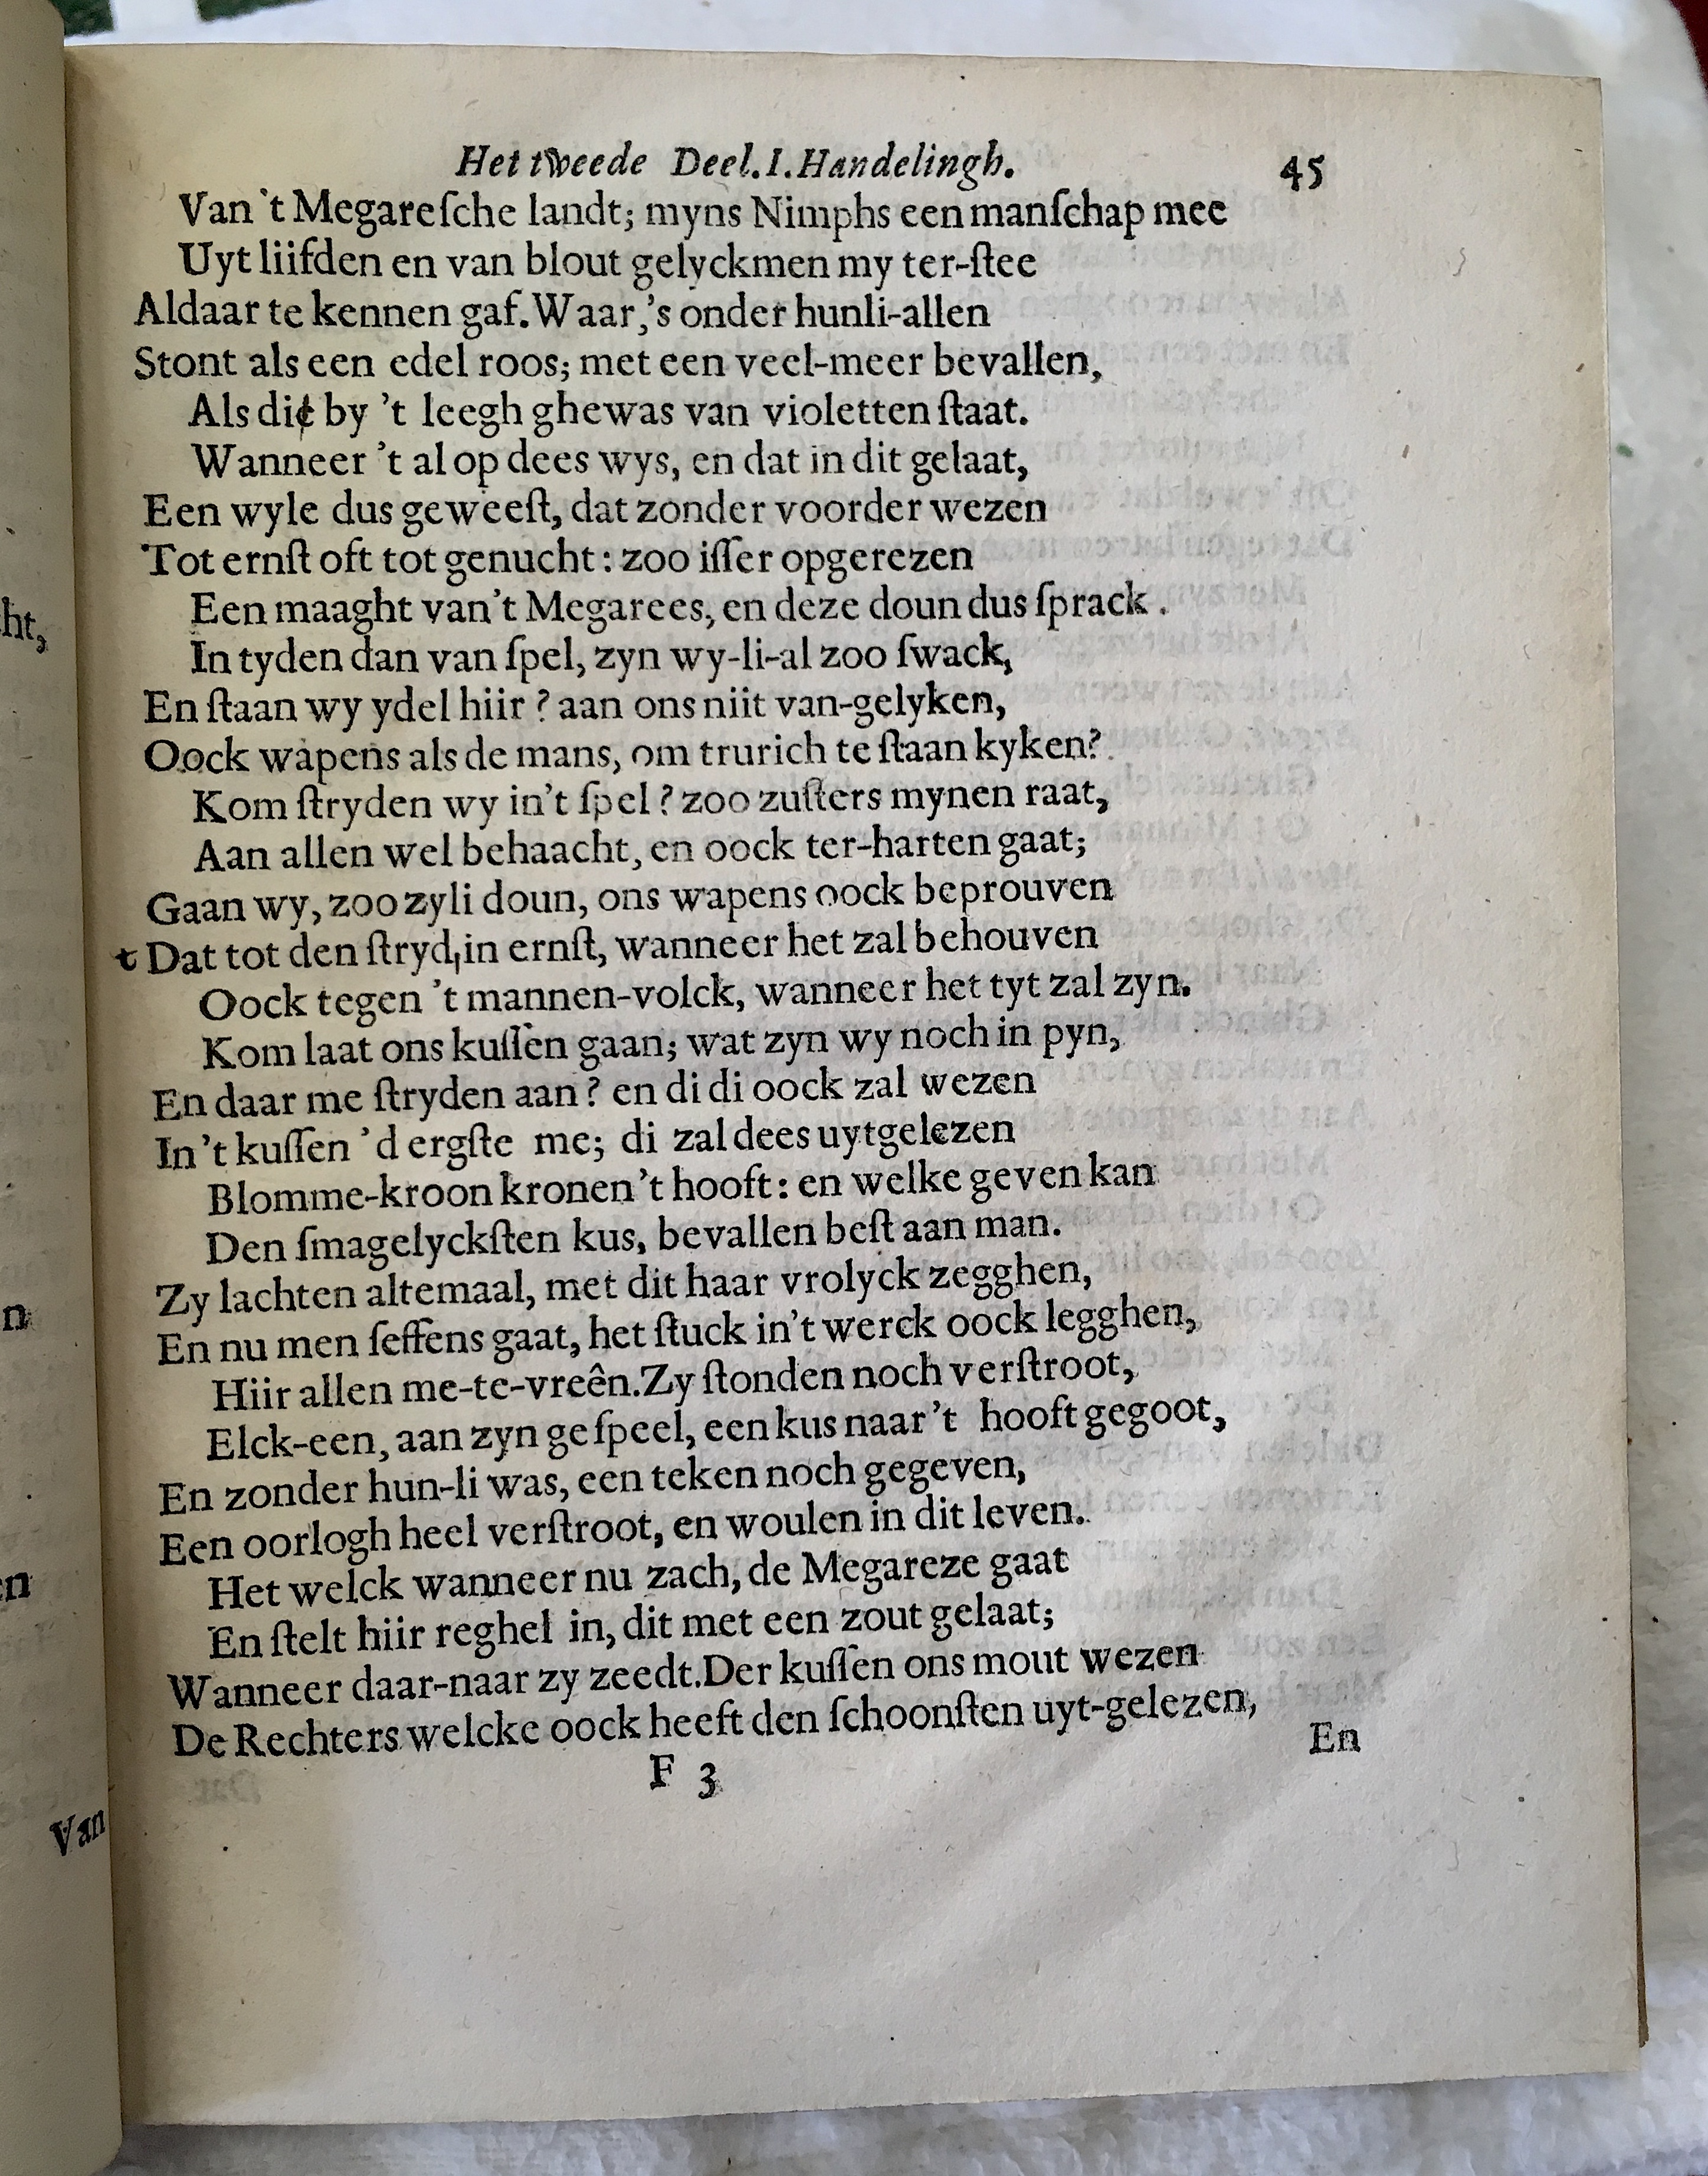 Het tweede Deel. I. Handelingh. 45
Van 't Megareſche landt; myns Nimphs een manſchap mee
Uyt liifden en van blout gelyckmen my ter-ſtee
Aldaar te kennen gaf. Waar,'s onder hunli-allen
Stont als een edel roos; met een veel-meer bevallen,
Als die by 't leegh ghewas van violetten ſtaat.
Wanneer 't al op dees wys, en dat in dit gelaat,
Een wyle dus geweeſt, dat zonder voorder wezen
Tot ernſt oft tot genucht: zoo iſſer opgerezen
Een maaght van't Megarees, en deze doun dus ſprack.
In tyden dan van ſpel, zyn wy-li-al zoo ſwack,
En ſtaan wy ydel hiir? aan ons niit van-gelyken,
Oock wapens als de mans, om trurich te ſtaan kyken?
Kom ſtryden wy in't ſpel? zoo zuſters mynen raat,
Aan allen wel behaacht, en oock ter-harten gaat;
Gaan wy, zoo zyli doun, ons wapens oock beprouven
t Dat tot den ſtryd, in ernſt, wanneer het zal behouven
Oock tegen 't mannen-volck, wanneer het tyt zal zyn.
Kom laat ons kuſſen gaan; wat zyn wy noch in pyn,
En daar me ſtryden aan? en di di oock zal wezen
In 't kuſſen 'd ergſte me; di zal dees uytgelezen
Blomme-kroon kronen 't hooft: en welke geven kan
Den ſmagelyckſten kus, bevallen beſt aan man.
Zy lachten altemaal, met dit haar vrolyck zegghen,
En nu men ſeffens gaat, het ſtuck in't werck oock legghen,
Hiir allen me-te-vreên. Zy ſtonden noch verſtroot,
Elck-een, aan zyn geſpeel, een kus naar 't hooft gegoot,
En zonder hun-li was, een teken noch gegeven,
Een oorlogh heel verſtroot, en woulen in dit leven.
Het welck wanneer nu zach, de Megareze gaat
En ſtelt hiir reghel in, dit met een zout gelaat;
Wanneer daar-naar zy zeedt. Der kuſſen ons mout wezen
De Rechters welcke oock heeft den ſchoonſten uyt-gelezen,
F 3 En
ht,
n
en
Van